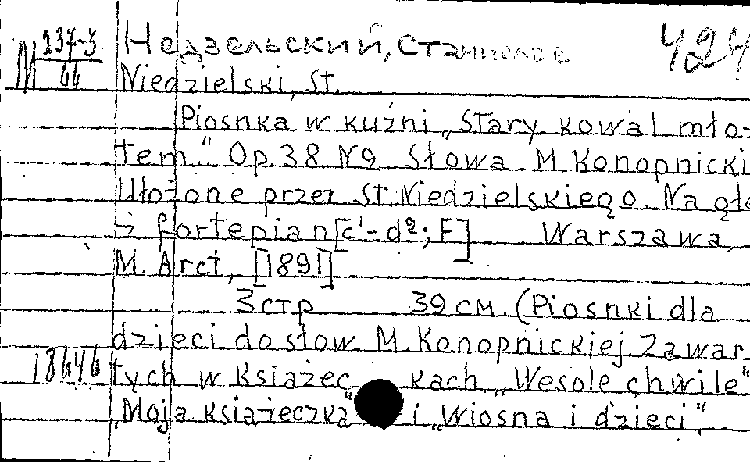 М 237-3/66
Недзельский, Станислав
424
Niedzielski, St.
Piosnka w kuźni „Stary kowal mło-
tem..." Op. 38 N9 Słowa M. Konopnicki
Ułożone przez St. Niedzielskiego. Na gło
z fortepian [c¹-d²; F] Warszawa,
M. Arct, [1891]
3 стр 39 см. (Piosnki dla
dzieci do słow M. Konopnickiej zawar
18646
tych w książec kach „Wesołe chwile"
„Moja książeczka" i „Wiosna i dzieci".